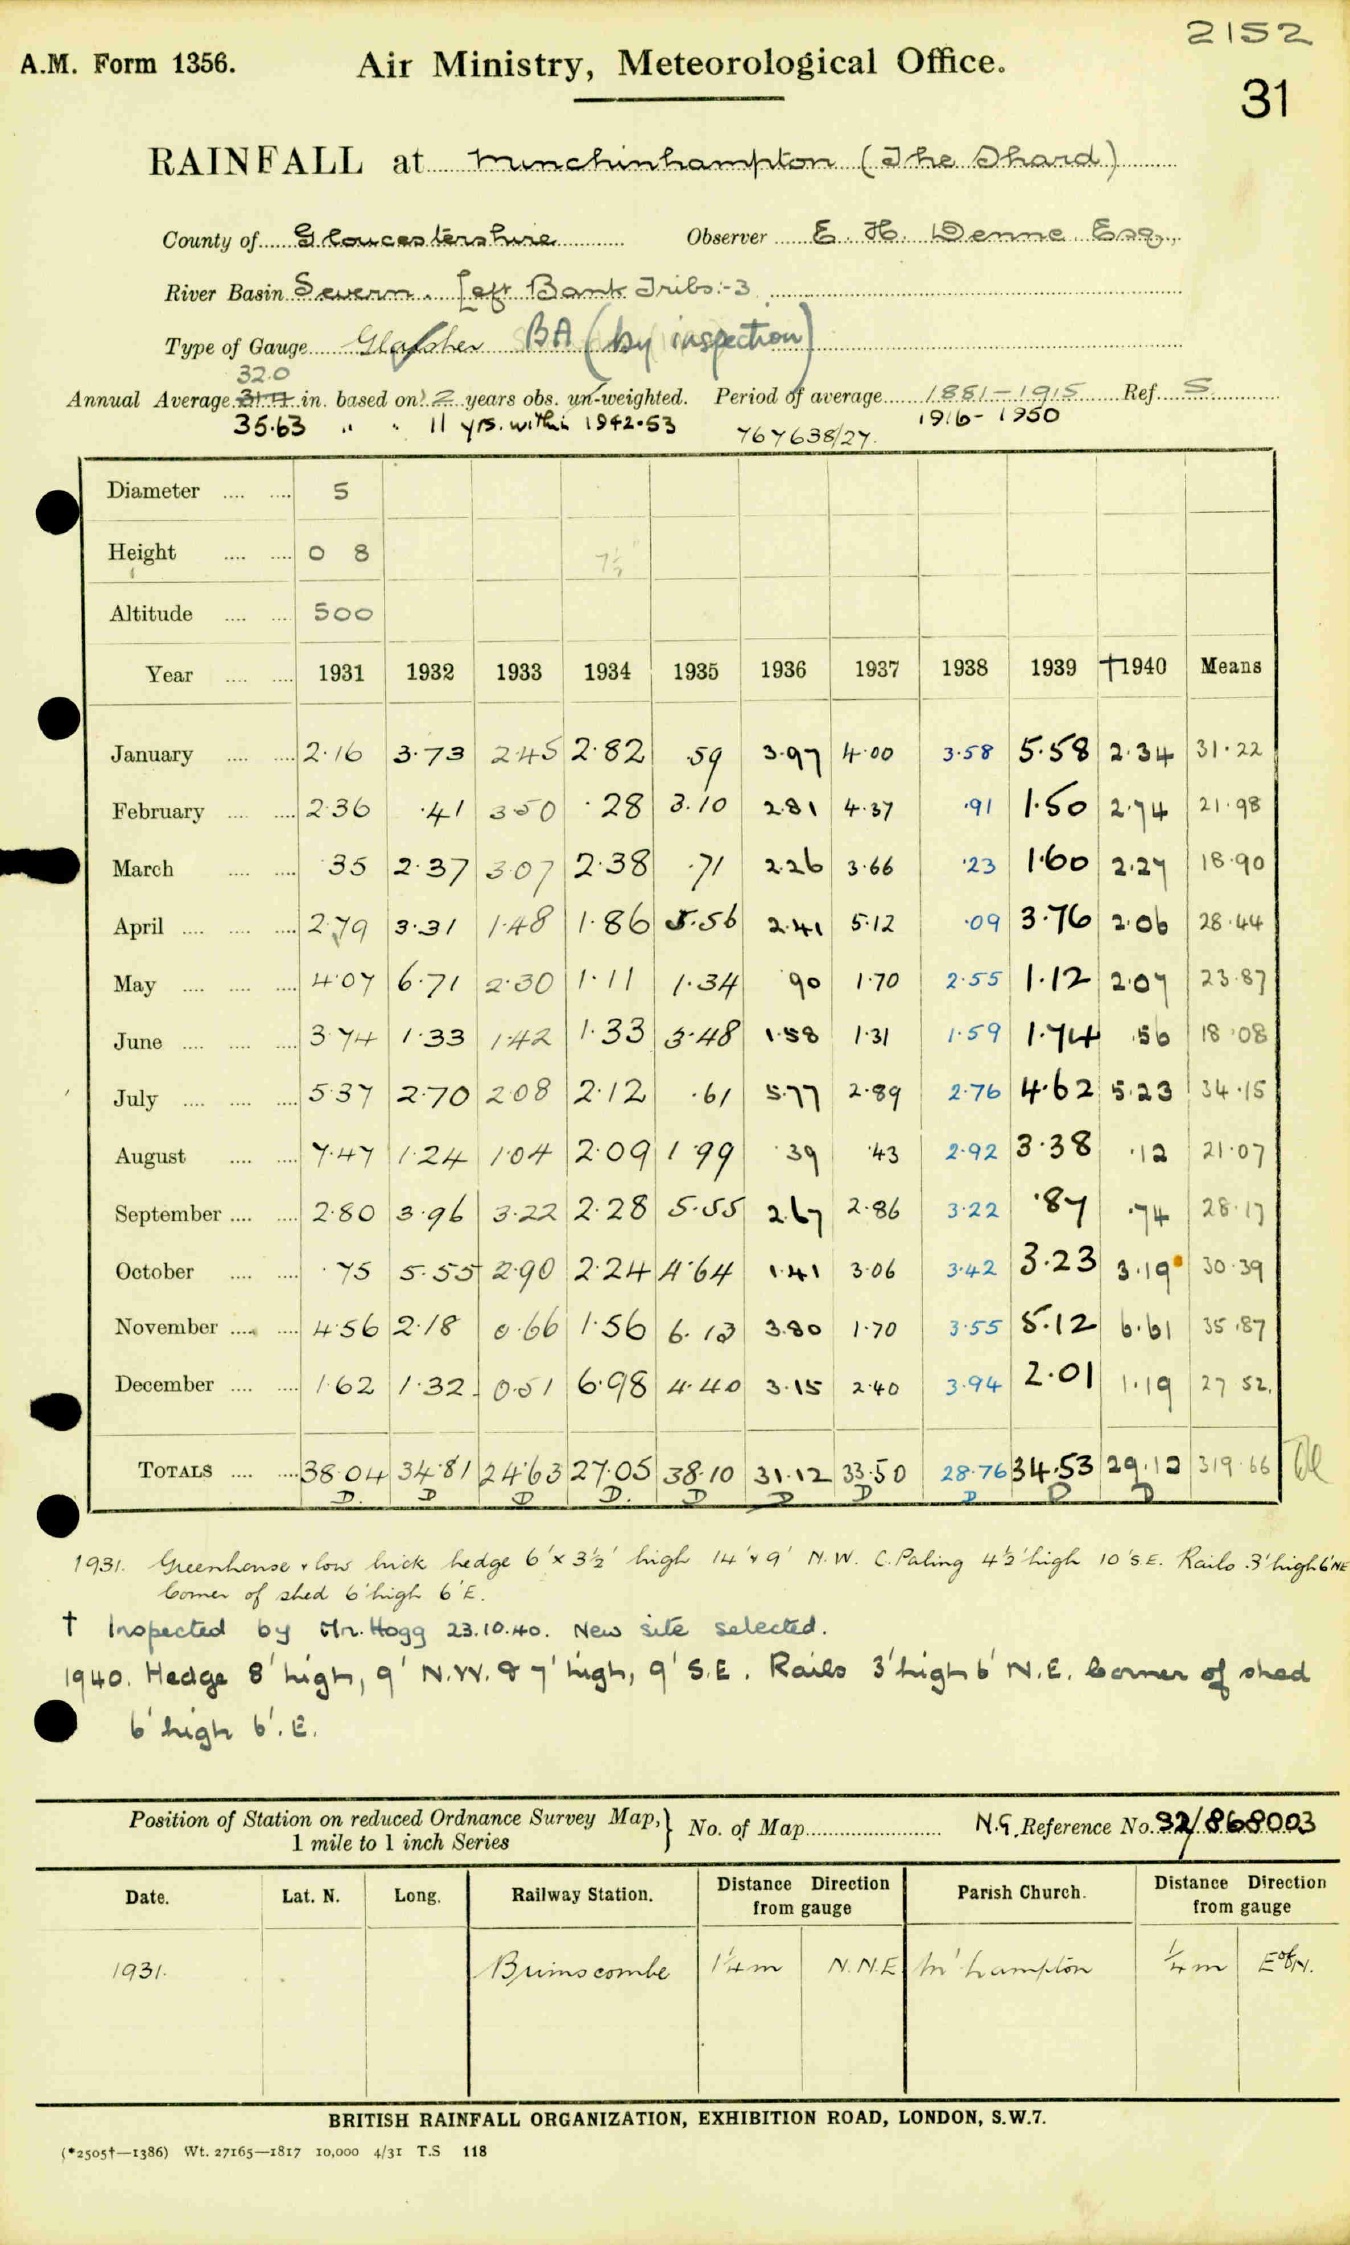 2152
A.M. Form 1356. Air Ministry, Meteorological Office.
31
RAINFALL at Minchinhampton (The Shard)
County of Gloucestershire Observer E. H. Denne Esq.,
River Basin Severn. Left Bank Tribs:-3
Type of Gauge Glaisher BA (by inspection)
32.0
Annual Average in. based on 2 years obs. un-weighted. Period of average 1881-1915 Ref. S.
35.63 " " 11 yrs. within 1942-53 1916-1950
767638/27.
Diameter 5
Height 0 8 7½"
Altitude 500
Year 1931 1932 1933 1934 1935 1936 1937 1938 1939 †1940 Means
January 2.16 3.73 2.45 2.82 .59 3.97 4.00 3.58 5.58 2.34 31.22
February 2.36 .41 3.50 .28 3.10 2.81 4.37 .91 1.50 2.74 21.98
March .35 2.37 3.07 2.38 .71 2.26 3.66 .23 1.60 2.27 18.90
April 2.79 3.31 1.48 1.86 5.56 2.41 5.12 .09 3.76 2.06 28.44
May 4.07 6.71 2.30 1.11 1.34 .90 1.70 2.55 1.12 2.07 23.87
June 3.74 1.33 1.42 1.33 3.48 1.58 1.31 1.59 1.74 .56 18.08
July 5.37 2.70 2.08 2.12 .61 5.77 2.89 2.76 4.62 5.23 34.15
August 7.47 1.24 1.04 2.09 1.99 .39 .43 2.92 3.38 .12 21.07
September 2.80 3.96 3.22 2.28 5.55 2.67 2.86 3.22 .87 .74 28.17
October .75 5.55 2.90 2.24 4.64 1.41 3.06 3.42 3.23 3.19 30.39
November 4.56 2.18 0.66 1.56 6.13 3.80 1.70 3.55 5.12 6.61 35.87
December 1.62 1.32 0.51 6.98 4.40 3.15 2.40 3.94 2.01 1.19 27.52.
TOTALS 38.04 34.81 24.63 27.05 38.10 31.12 33.50 28.76 34.53 29.12 319.66
D. D D D. D D D D D D
1931. Greenhouse & low thick hedge 6'×3½' high 14' & 9' N.W. C. Paling 4½' high 10' S.E. Rails 3' high 6' NE
Corner of shed 6' high 6' E.
† Inspected by Mr. Hogg 23.10.40. New site selected.
1940. Hedge 8' high, 9' N.W. & 7' high, 9' S.E. Rails 3' high 6' N.E. Corner of shed
6' high 6'. E.
Position of Station on reduced Ordnance Survey Map,} No. of Map N.G. Reference No. 32/868003
1 mile to 1 inch Series
Date. Lat. N. Long. Railway Station. Distance Direction from gauge Parish Church. Distance Direction from gauge
1931. Brimscombe 1¼m N.N.E M'hampton ¼m E of N.
BRITISH RAINFALL ORGANIZATION, EXHIBITION ROAD, LONDON, S.W.7.
(*2505†—1386) Wt. 27165—1817 10,000 4/31 T.S 118